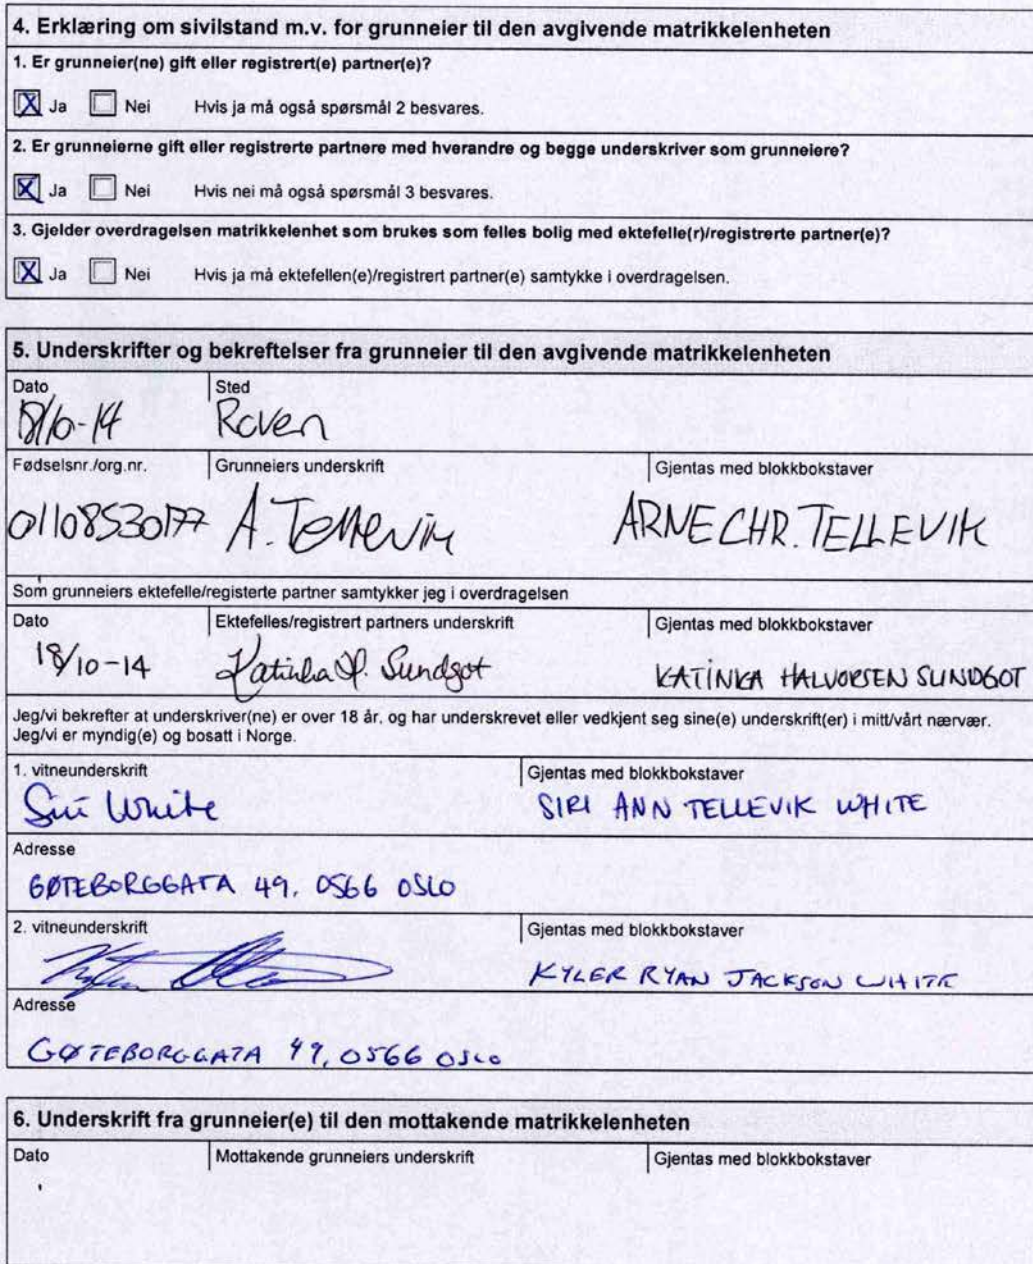 4. Erklæring om sivilstand m.v. for grunneier til den avgivende matrikkelenheten
1. Er grunneier(ne) gift eller registrert(e) partner(e)?
X Ja Nei Hvis ja må også spørsmål 2 besvares.
2. Er grunneierne gift eller registrerte partnere med hverandre og begge underskriver som grunneiere?
X Ja Nei Hvis nei må også spørsmål 3 besvares.
3. Gjelder overdragelsen matrikkelenhet som brukes som felles bolig med ektefelle(r)/registrerte partner(e)?
X Ja Nei Hvis ja må ektefellen(e)/registrert partner(e) samtykke i overdragelsen.
5. Underskrifter og bekreftelser fra grunneier til den avgivende matrikkelenheten
Dato Sted
18/10-14
Fødselsnr./org.nr. Grunneiers underskrift Gjentas med blokkbokstaver
01108530177 A. Tellevik ARNE CHR. TELLEVIK
Som grunneiers ektefelle/registerte partner samtykker jeg i overdragelsen
Dato Ektefelles/registrert partners underskrift Gjentas med blokkbokstaver
18/10-14 Katinka H. Sundgot KATINKA HALVORSEN SUNDGOT
Jeg/vi bekrefter at underskriver(ne) er over 18 år, og har underskrevet eller vedkjent seg sine(e) underskrift(er) i mitt/vårt nærvær.
Jeg/vi er myndig(e) og bosatt i Norge.
1. vitneunderskrift Gjentas med blokkbokstaver
Siri White SIRI ANN TELLEVIK WHITE
Adresse
GØTEBORGGATA 49, 0566 OSLO
2. vitneunderskrift Gjentas med blokkbokstaver
KYLER RYAN JACKSON WHITE
Adresse
GØTEBORGGATA 49, 0566 OSLO
6. Underskrift fra grunneier(e) til den mottakende matrikkelenheten
Dato Mottakende grunneiers underskrift Gjentas med blokkbokstaver